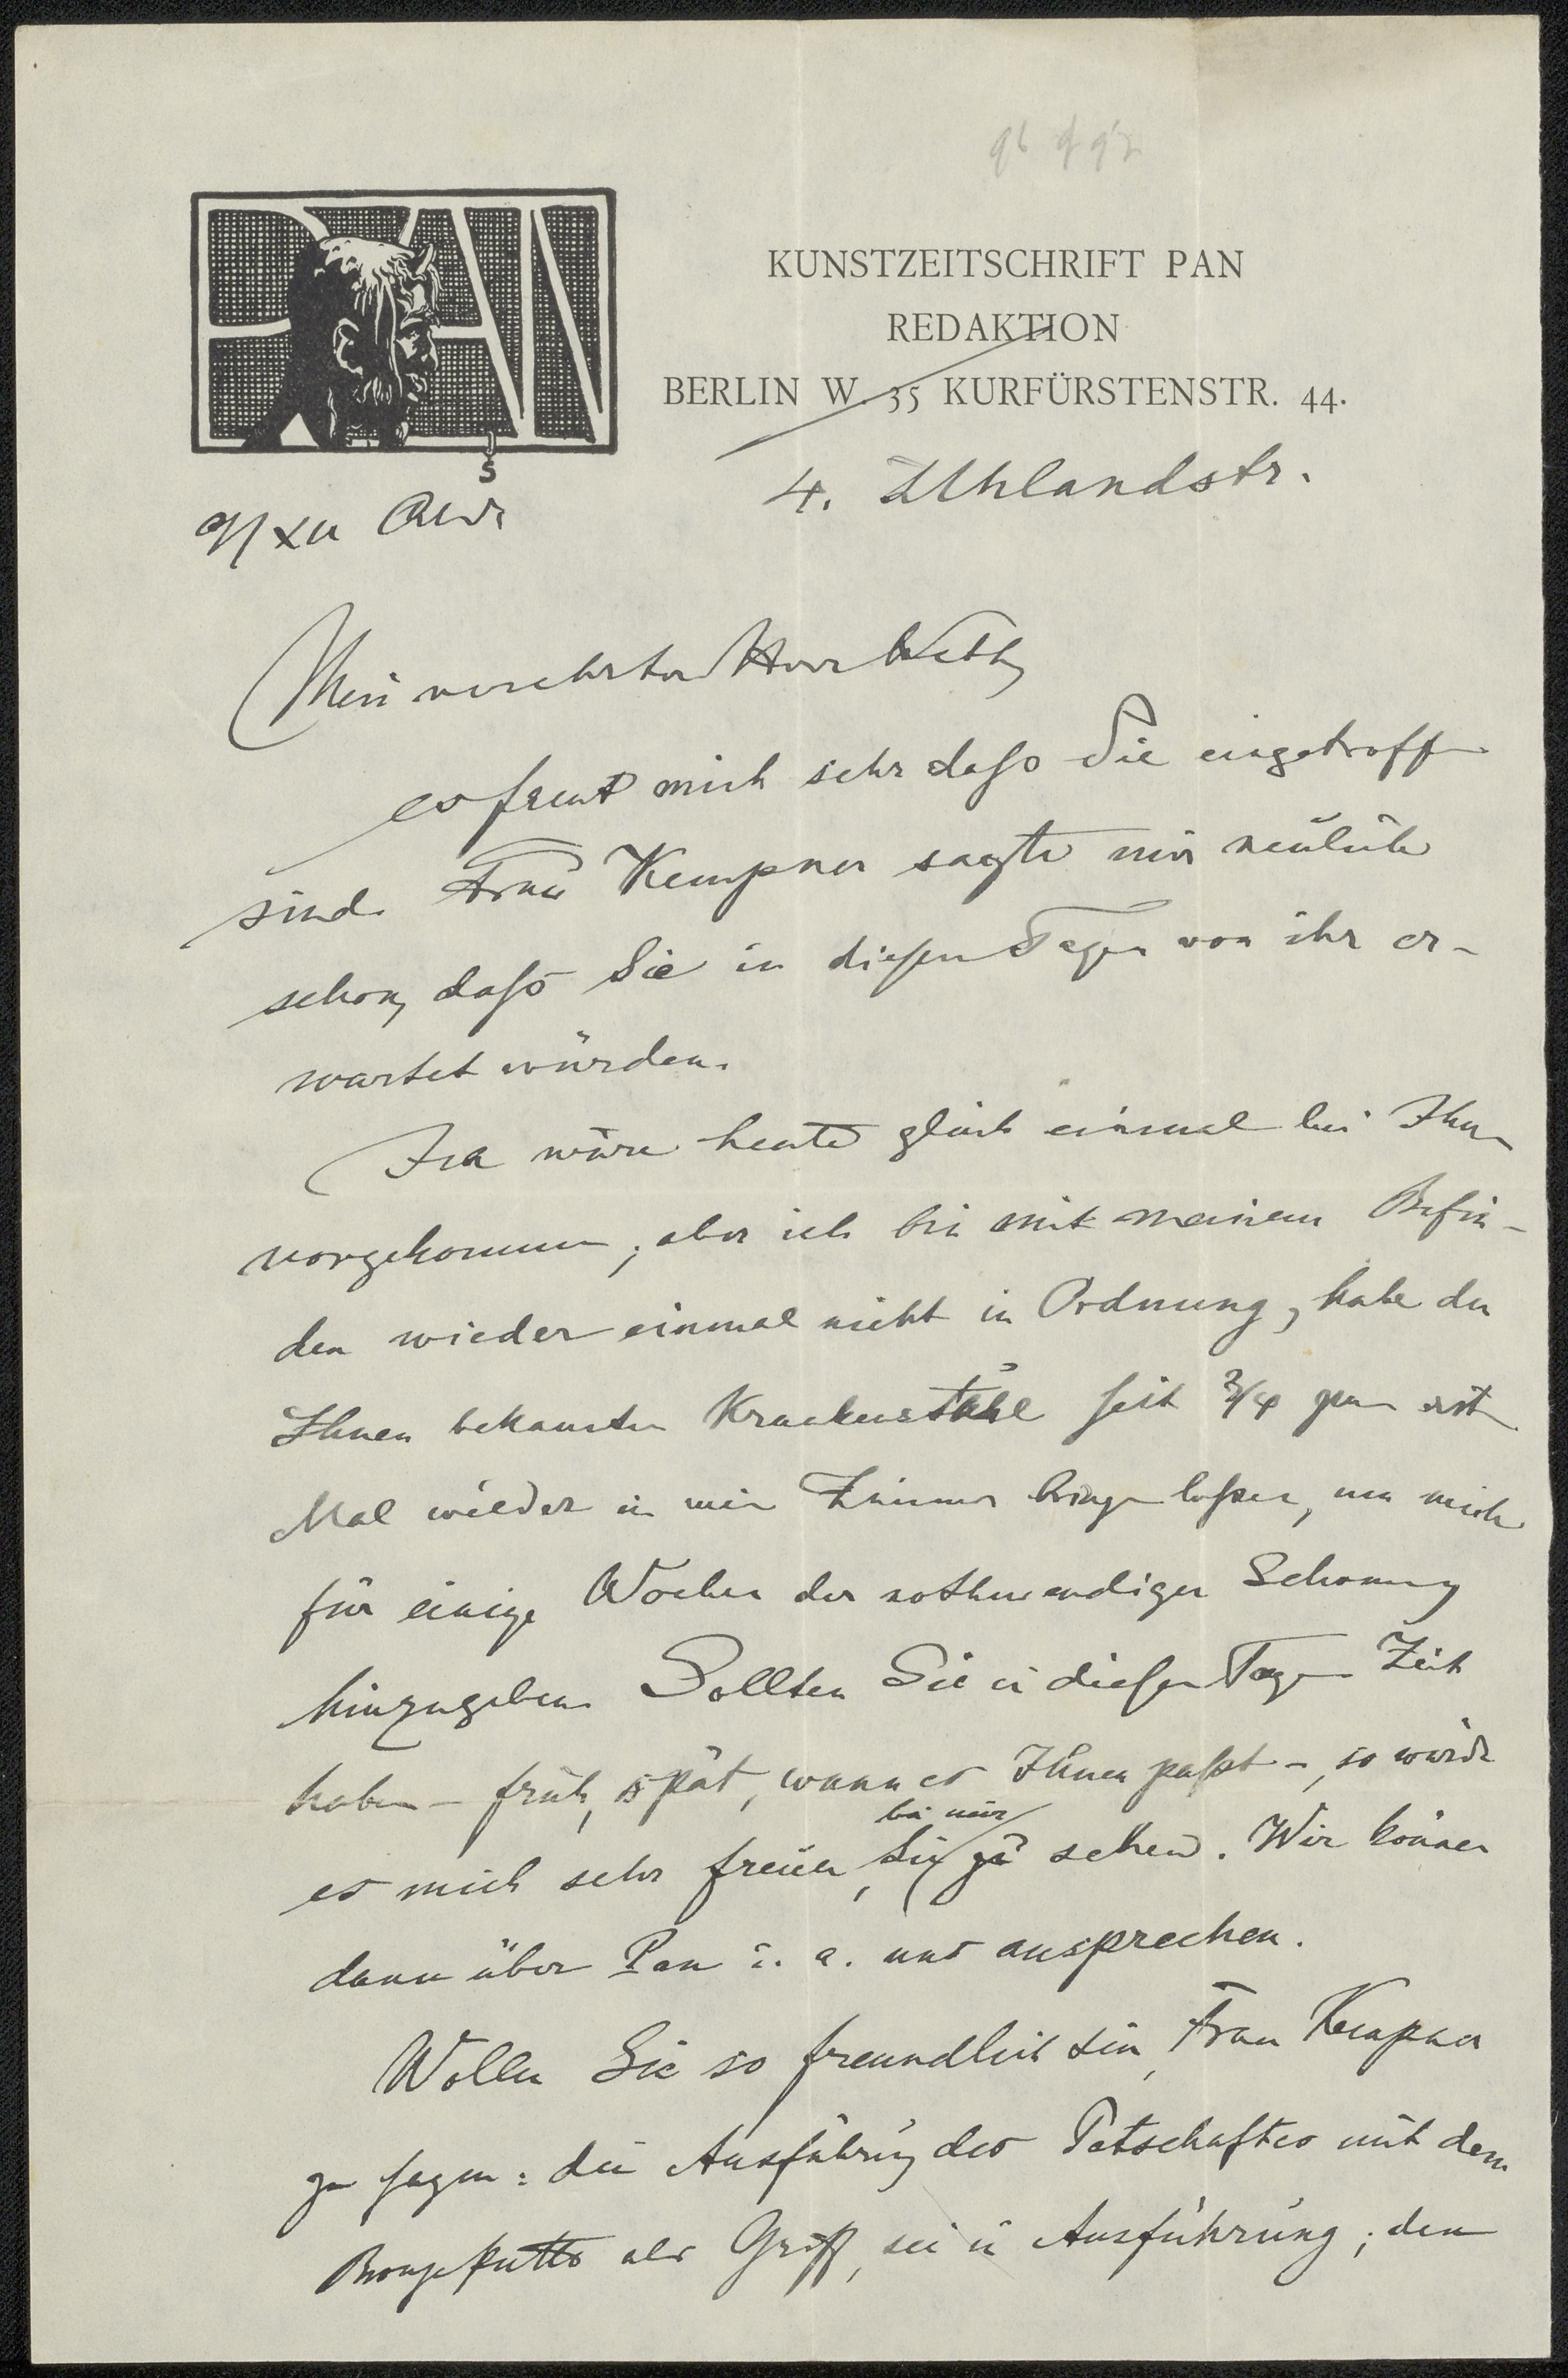 PAN
KUNSTZEITSCHRIFT PAN
REDAKTION
BERLIN W. 35 KURFÜRSTENSTR. 44.
4. Uhlandstr.
Mein verehrter Herr Veth,
es freut mich sehr dass Sie eingetroffen
sind. Frau Kempner sagte mir neulich
schon, dass Sie in diesen Tagen von ihr er-
wartet würden.
Ich wäre heute gleich einmal bei Ihnen
vorgekommen, aber ich bin mit meinem Befin-
den wieder einmal nicht in Ordnung, habe den
Ihnen bekannten Krankenstuhl seit 3/4 zum ersten
Mal wieder in mein Zimmer bringen lassen, um mich
für einige Wochen der nothwendigen Schonung
hinzugeben. Sollten Sie in diesen Tagen Zeit
haben – früh, spät, wann es Ihnen passt –, so würde
es mich sehr freuen, Sie bei mir zu sehen. Wir können
dann über Pan u. a. uns aussprechen.
Wollen Sie so freundlich sein, Frau Kempner
zu sagen: die Ausführung des Petschaftes mit dem
Bronzeputto als Griff, sei in Ausführung; den